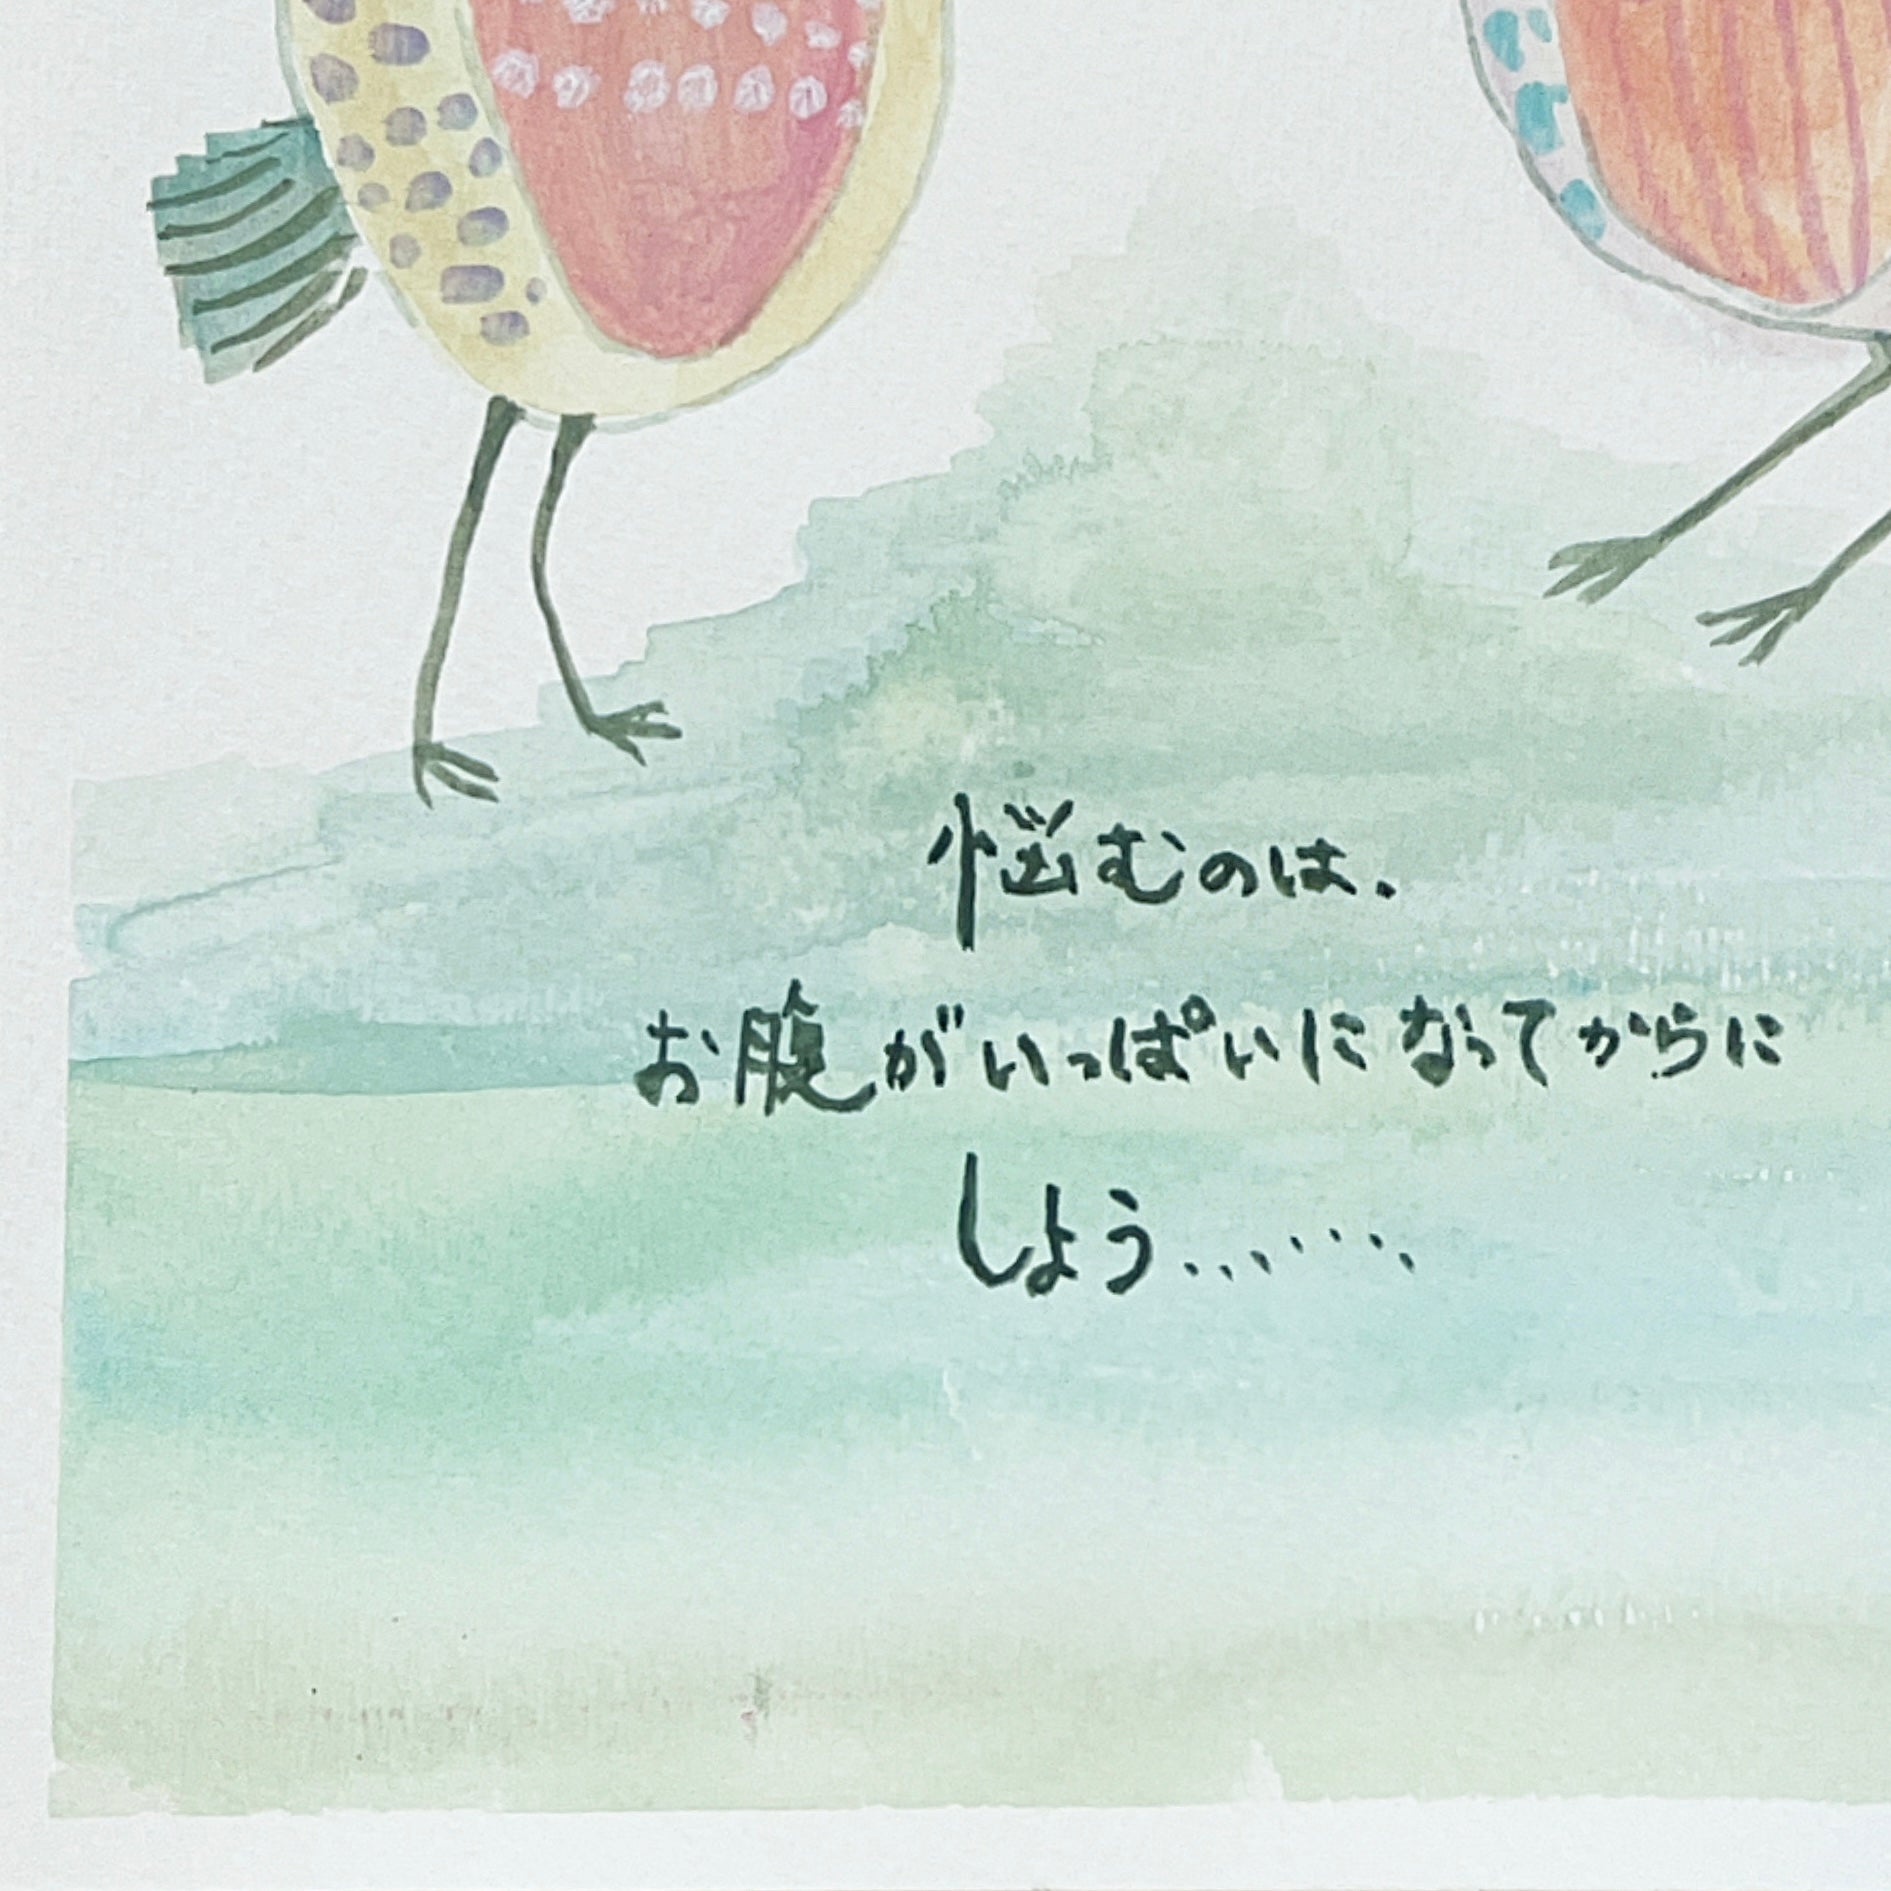 悩むのは、
お腹がいっぱいになってからに
しよう………